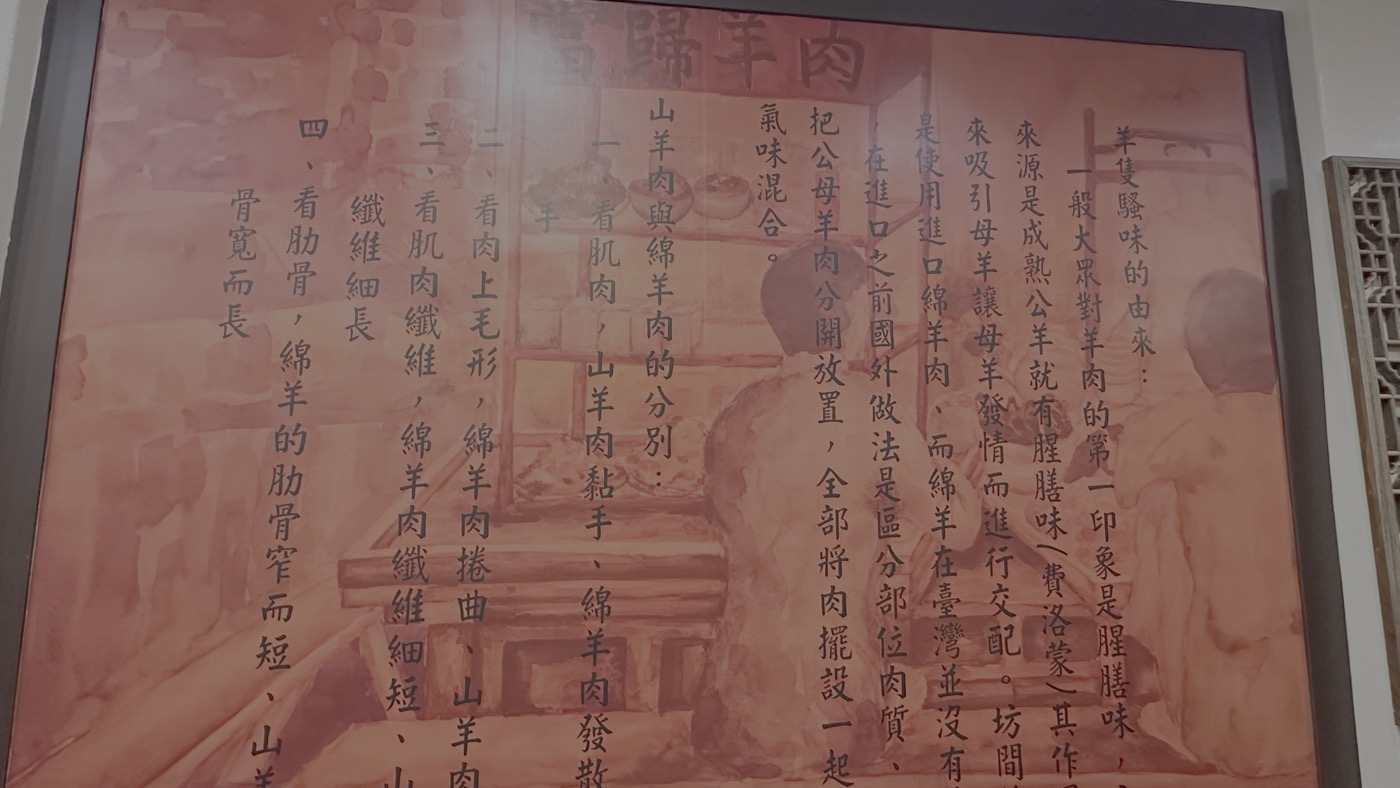 當歸羊肉
羊隻騷味的由來：
一般大眾對羊肉的第一印象是腥膳味，
來源是成熟公羊就有腥膳味(費洛蒙)其作
來吸引母羊讓母羊發情而進行交配。坊間
是使用進口綿羊肉、而綿羊在臺灣並沒有
，在進口之前國外做法是區分部位肉質、
把公母羊肉分開放置，全部將肉擺設一起
氣味混合。
山羊肉與綿羊肉的分別：
一、看肌肉，山羊肉黏手、綿羊肉發散
手
二、看肉上毛形，綿羊肉捲曲、山羊肉
三、看肌肉纖維，綿羊肉纖維細短、山
纖維細長
四、看肋骨，綿羊的肋骨窄而短、山羊
骨寬而長